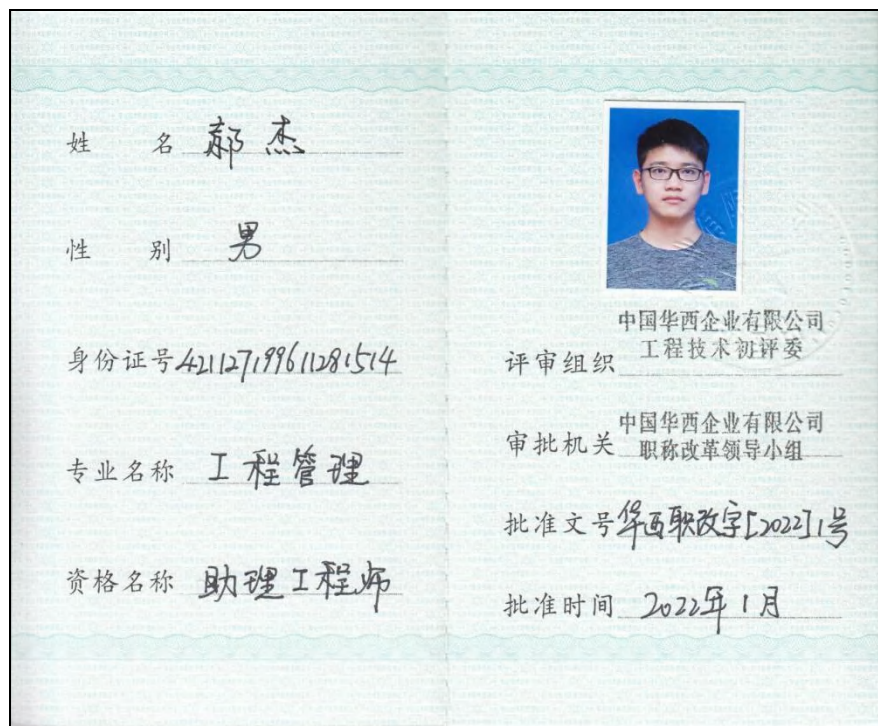 姓 名 郝杰
性 别 男
身份证号 421127199611281514
专业名称 工程管理
资格名称 助理工程师
中国华西企业有限公司
评审组织 工程技术初评委
中国华西企业有限公司
审批机关 职称改革领导小组
批准文号 华西职改字[2022]1号
批准时间 2022年1月